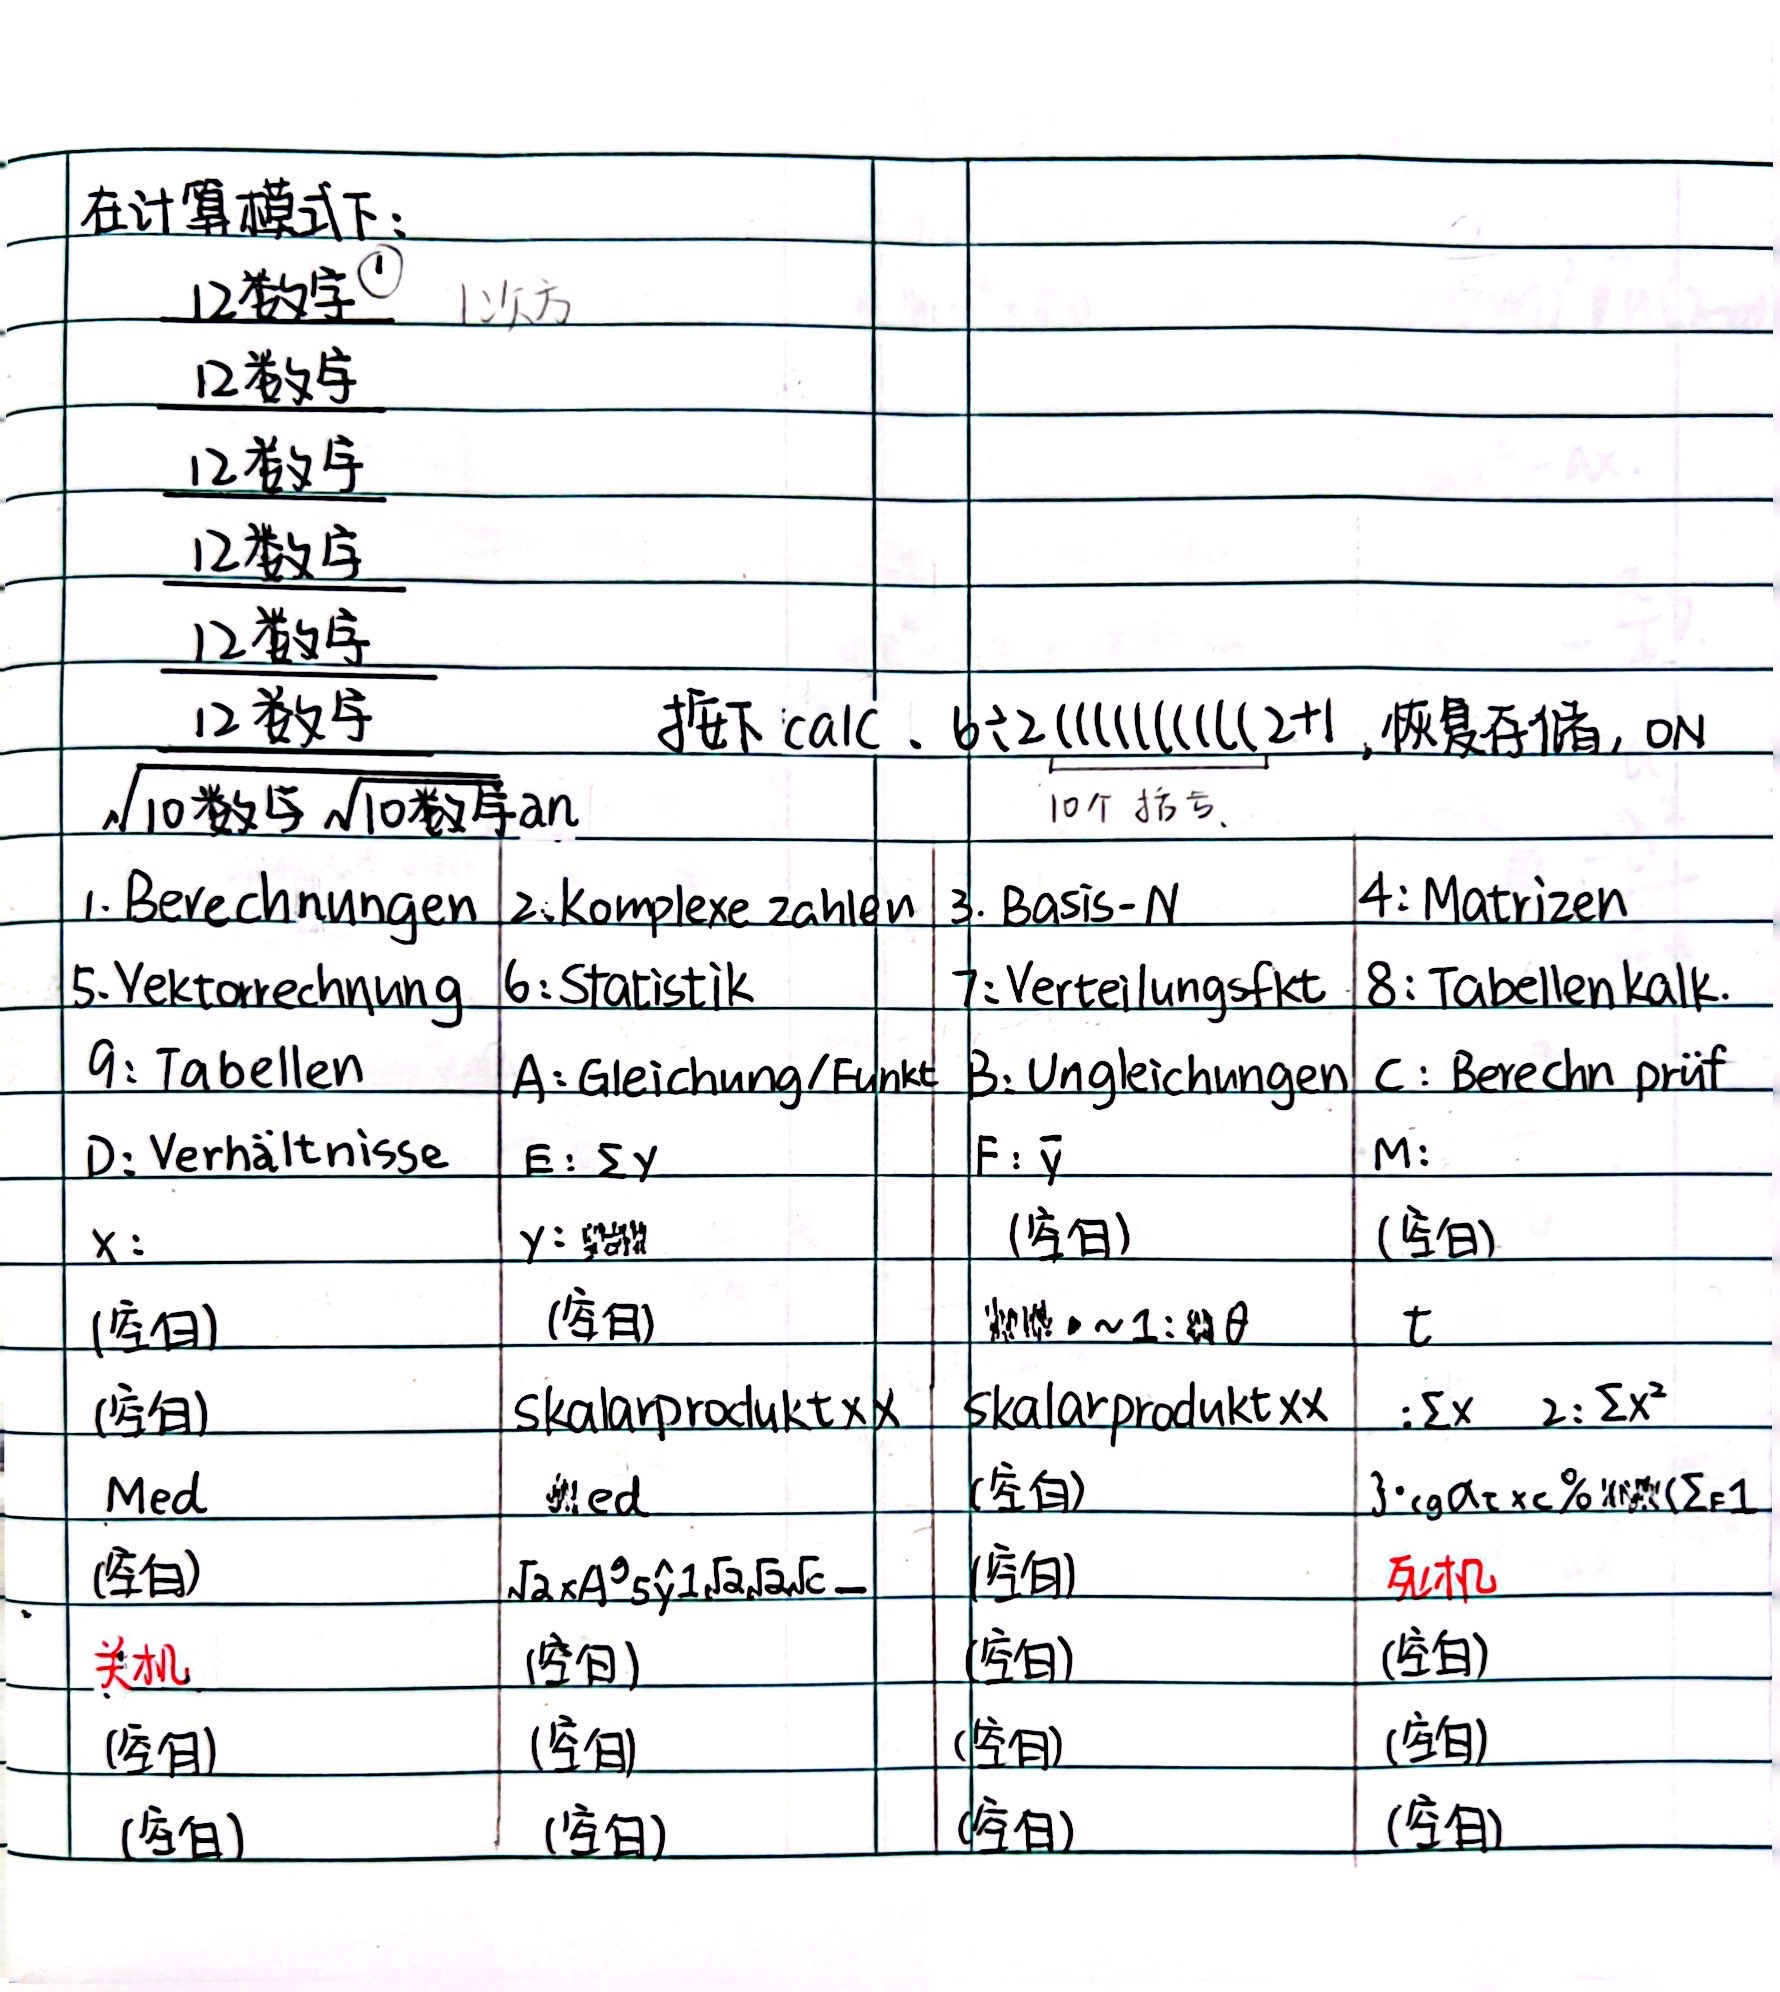 在计算模式下:
12数字① 1次方
12数字
12数字
12数字
12数字
12数字 按下calc、6÷2((((((((((2+1,恢复存储,ON
√10数字√10数字an 10个括号、
1. Berechnungen 2. Komplexe zahlen 3. Basis-N 4: Matrizen
5. Vektorrechnung 6: Statistik 7: Verteilungsfkt 8: Tabellenkalk.
9: Tabellen A: Gleichung/Funkt B: Ungleichungen C: Berechn prüf
D: Verhältnisse E: Σy F: ȳ M:
x: y: (空白) (空白)
(空白) (空白) ~1: θ t
(空白) skalarproduktxx skalarproduktxx :Σx 2: Σx²
Med ed (空白)
(空白) (空白) 死机
关机 (空白) (空白) (空白)
(空白) (空白) (空白) (空白)
(空白) (空白) (空白) (空白)